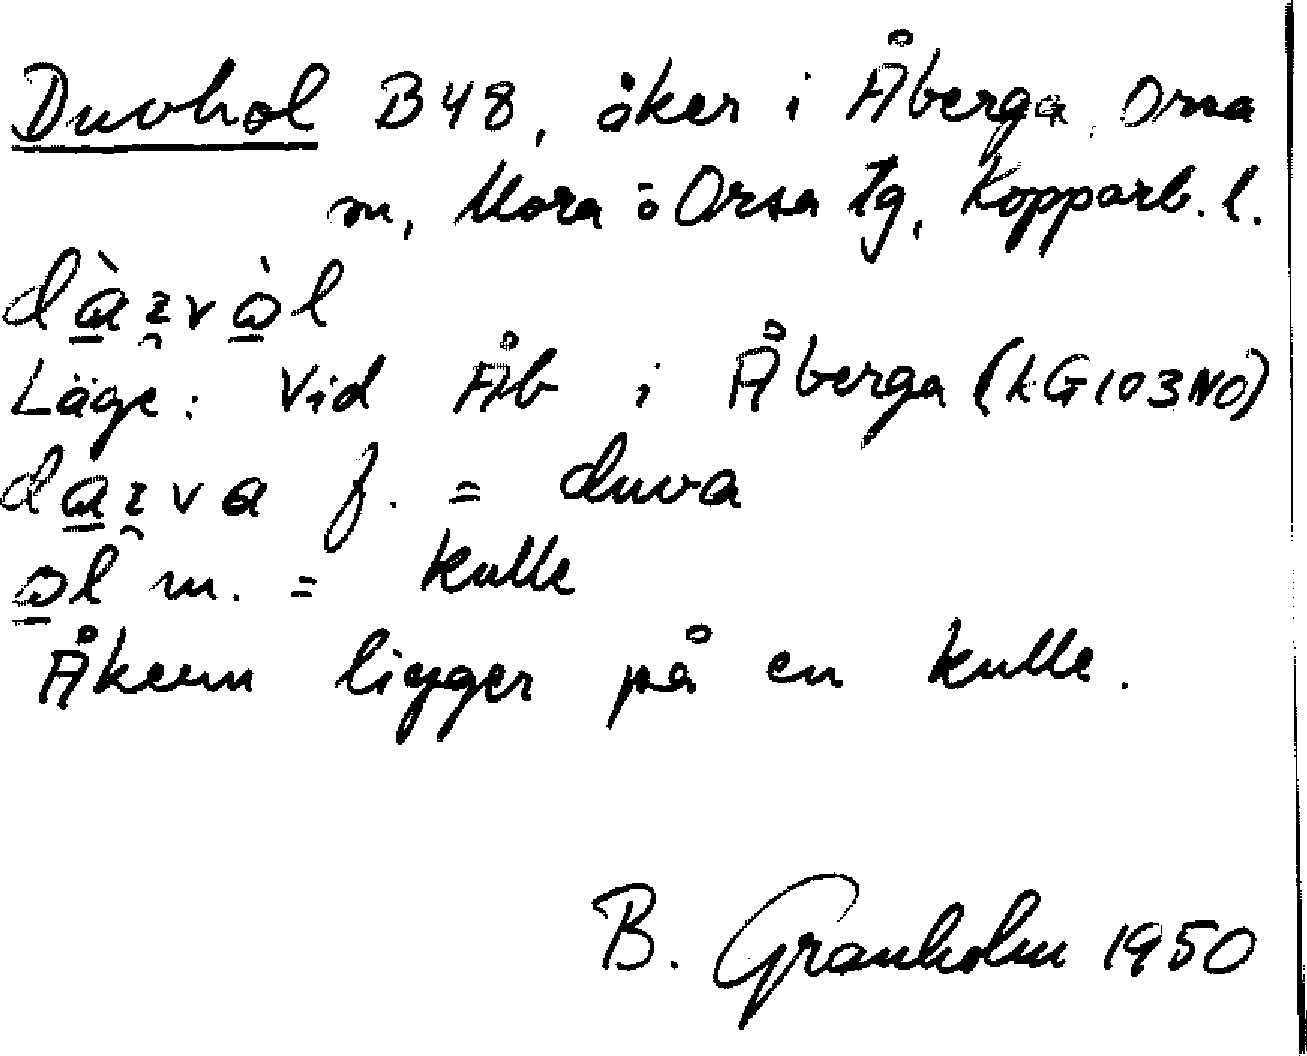 Duvhol B48, åker i Åberga, Orsa
m, Mora o Orsa tg, Kopparb. l.
Läge: Vid Åb i Åberga (KG103NO)
f. = duva
m. = kulle
Åkern ligger på en kulle.
B. Granholm 1950